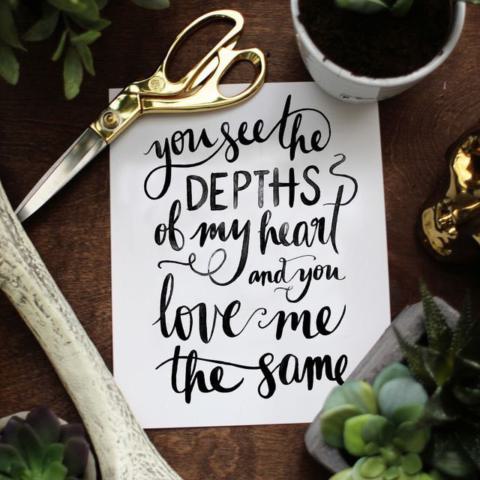 you see the
DEPTHS
of my heart
and you
love me
the same